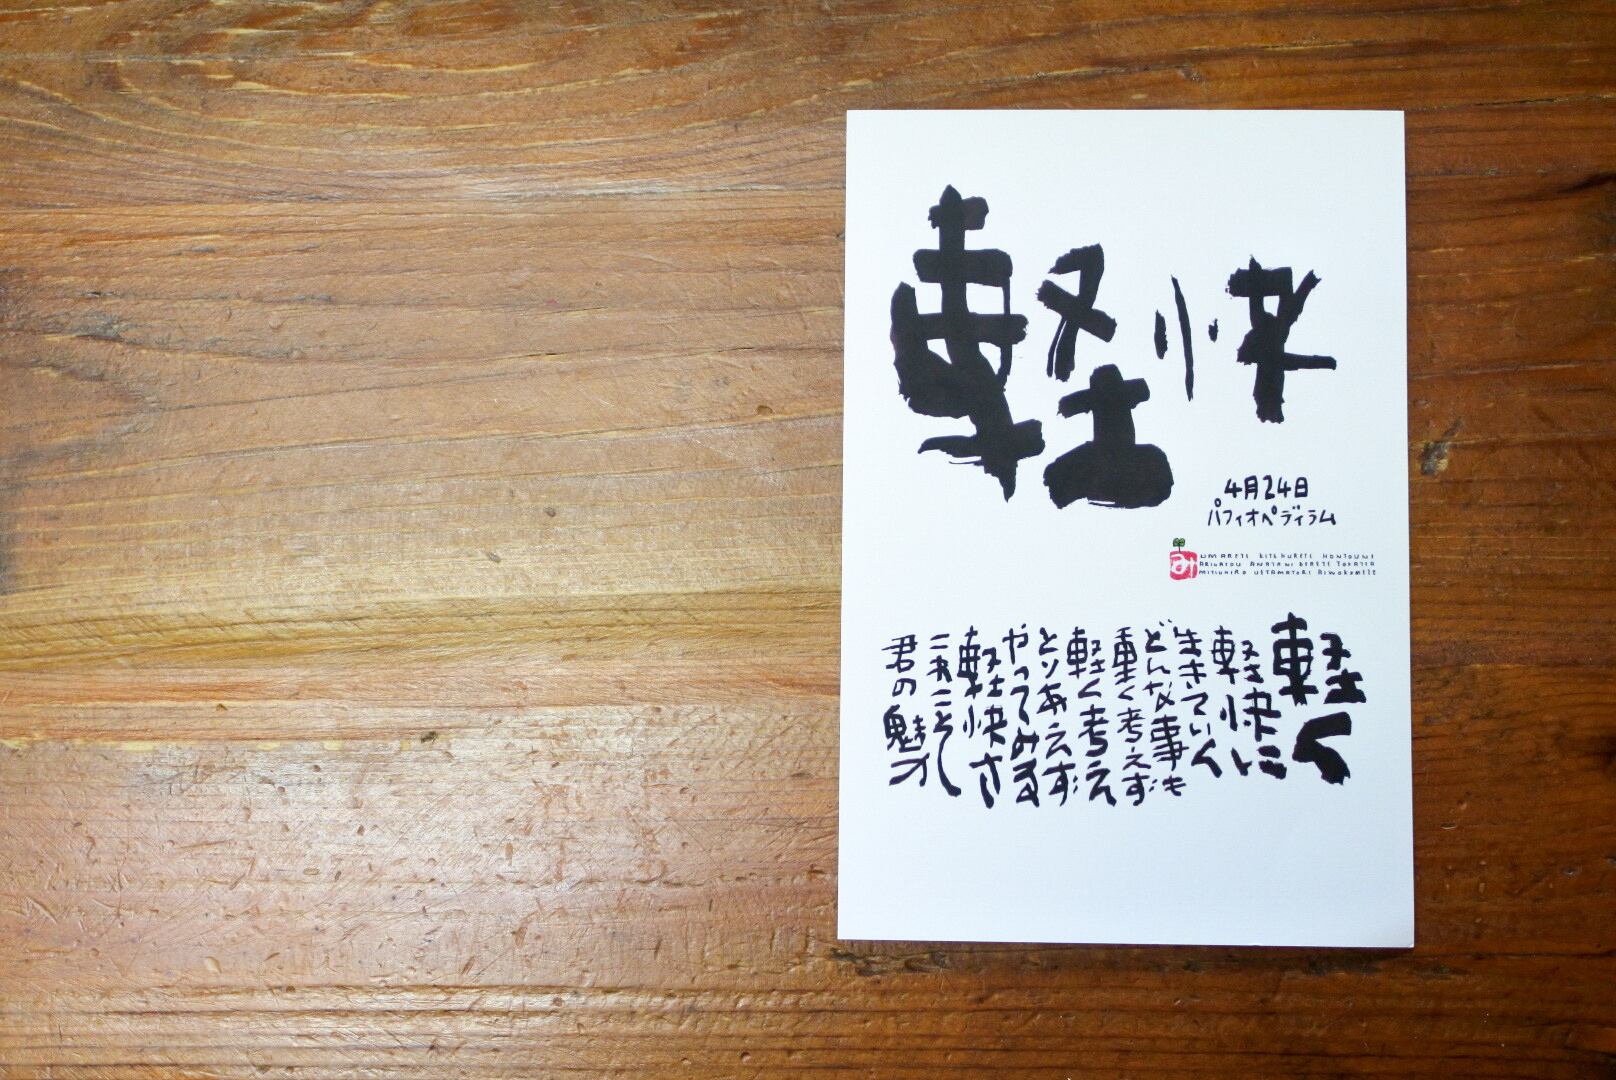 軽快
4月24日
パフィオペディラム
み
UMARETE KITEKURETE HONTOUNI
ARIGATOU ANATANI DEAETE YOKATTA
AIWOKOMETE
軽く
軽快に
生きていく
どんな事も
重く考えず
軽く考え
とりあえず
やってみる
軽快さ
これこそ
君の魅力